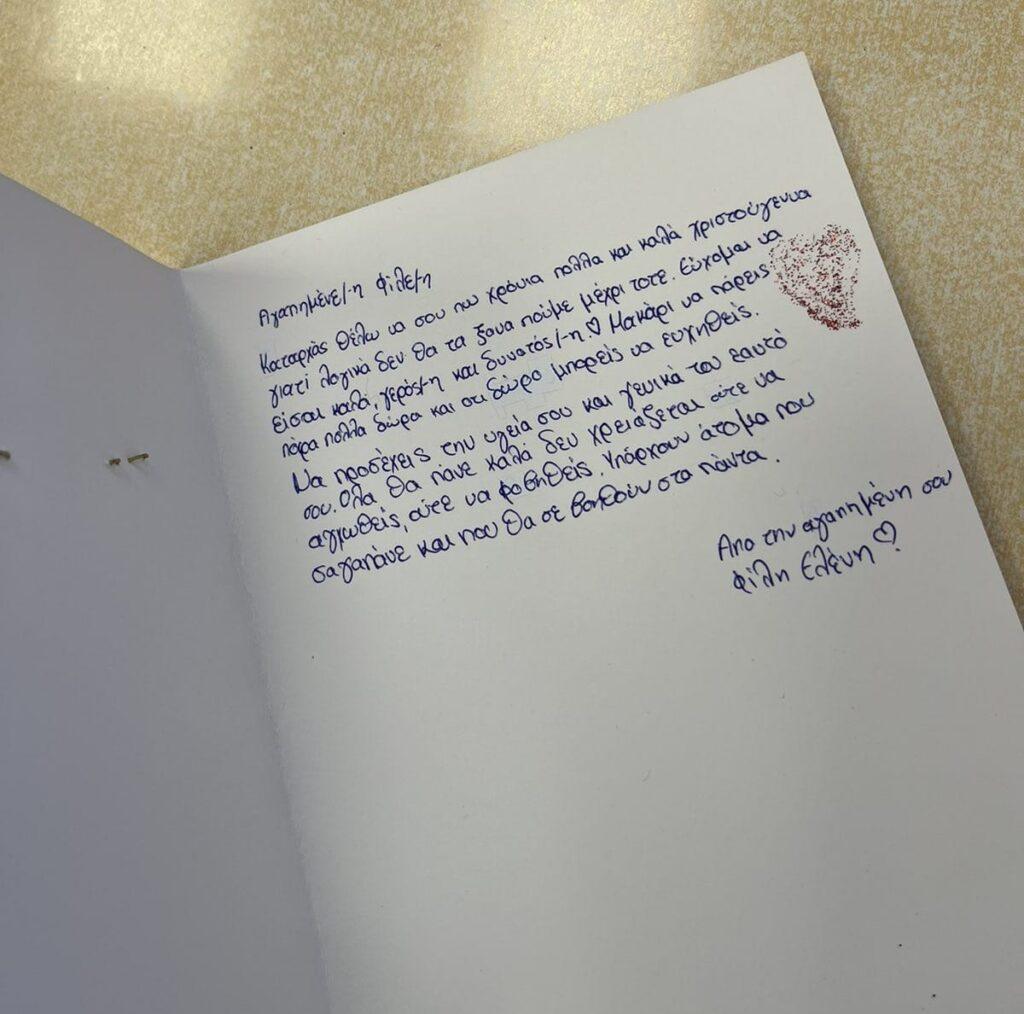 Αγαπημένε/-η Φίλε/η
Καταρχάς θέλω να σου πω χρόνια πολλα και καλά χριστούγεννα
γιατί λογικά δεν θα τα ξανα πούμε μέχρι τοτε. Εύχομαι να
είσαι καλά, γερός/-η και δυνατός/-η.♡ Μακάρι να πάρεις
πάρα πολλα δώρα και οτι δώρο μπορείς να ευχηθείς.
Να προσέχεις την υγεία σου και γενικά του εαυτό
σου. Ολα θα πάνε καλά δεν χρειάζεται ούτε να
αγχωθείς, ούτε να φοβηθείς. Υπάρχουν άτομα που
σαγαπάνε και που θα σε βοηθούν στα πάντα.
Απο την αγαπημένη σου
φίλη Ελένη ♡.